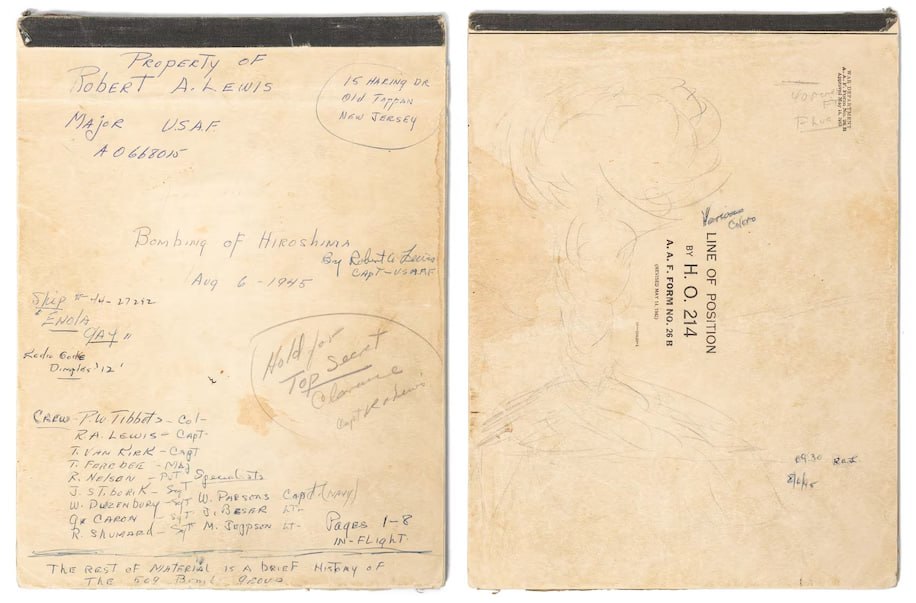 Property of
Robert A. Lewis
Major USAF
AO668015
15 Haring Dr
Old Tappan
New Jersey
Bombing of Hiroshima
By Robert A Lewis
Capt-USAAF
Aug 6 - 1945
Ship # 44-27292
"Enola
Gay"
Radio Code
Dimples '12'
Hold for
Top Secret
Clearance
Capt R A Lewis
Crew - P.W Tibbets - Col-
R.A. Lewis - Capt-
T. Van Kirk - Capt
T. Ferebee - Maj
R. Nelson - Pvt
J. Stiborik - Sgt
W. Duzenbury - Sgt
G. Caron - Sgt
R. Shumard - Sgt
Specialists
W. Parsons Capt (Navy)
J. Besar Lt-
M. Jeppson Lt-
Pages 1-8
in-flight.
The rest of material is a brief history of
The 509 Bomb. Group
WAR DEPARTMENT
A. A. F. Form No. 26 B
LINE OF POSITION
BY H. O. 214
A. A. F. FORM NO. 26 B
(REVISED MAY 14, 1942)
0930 RaL
8/6/45